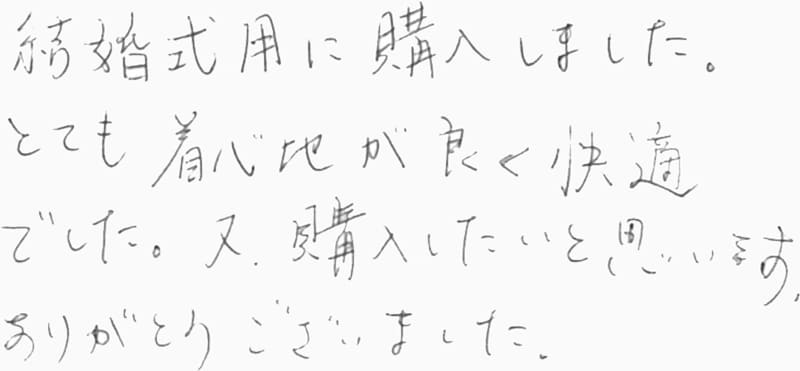 結婚式用に購入しました。
とても着心地が良く快適
でした。又、購入したいと思います。
ありがとうございました。